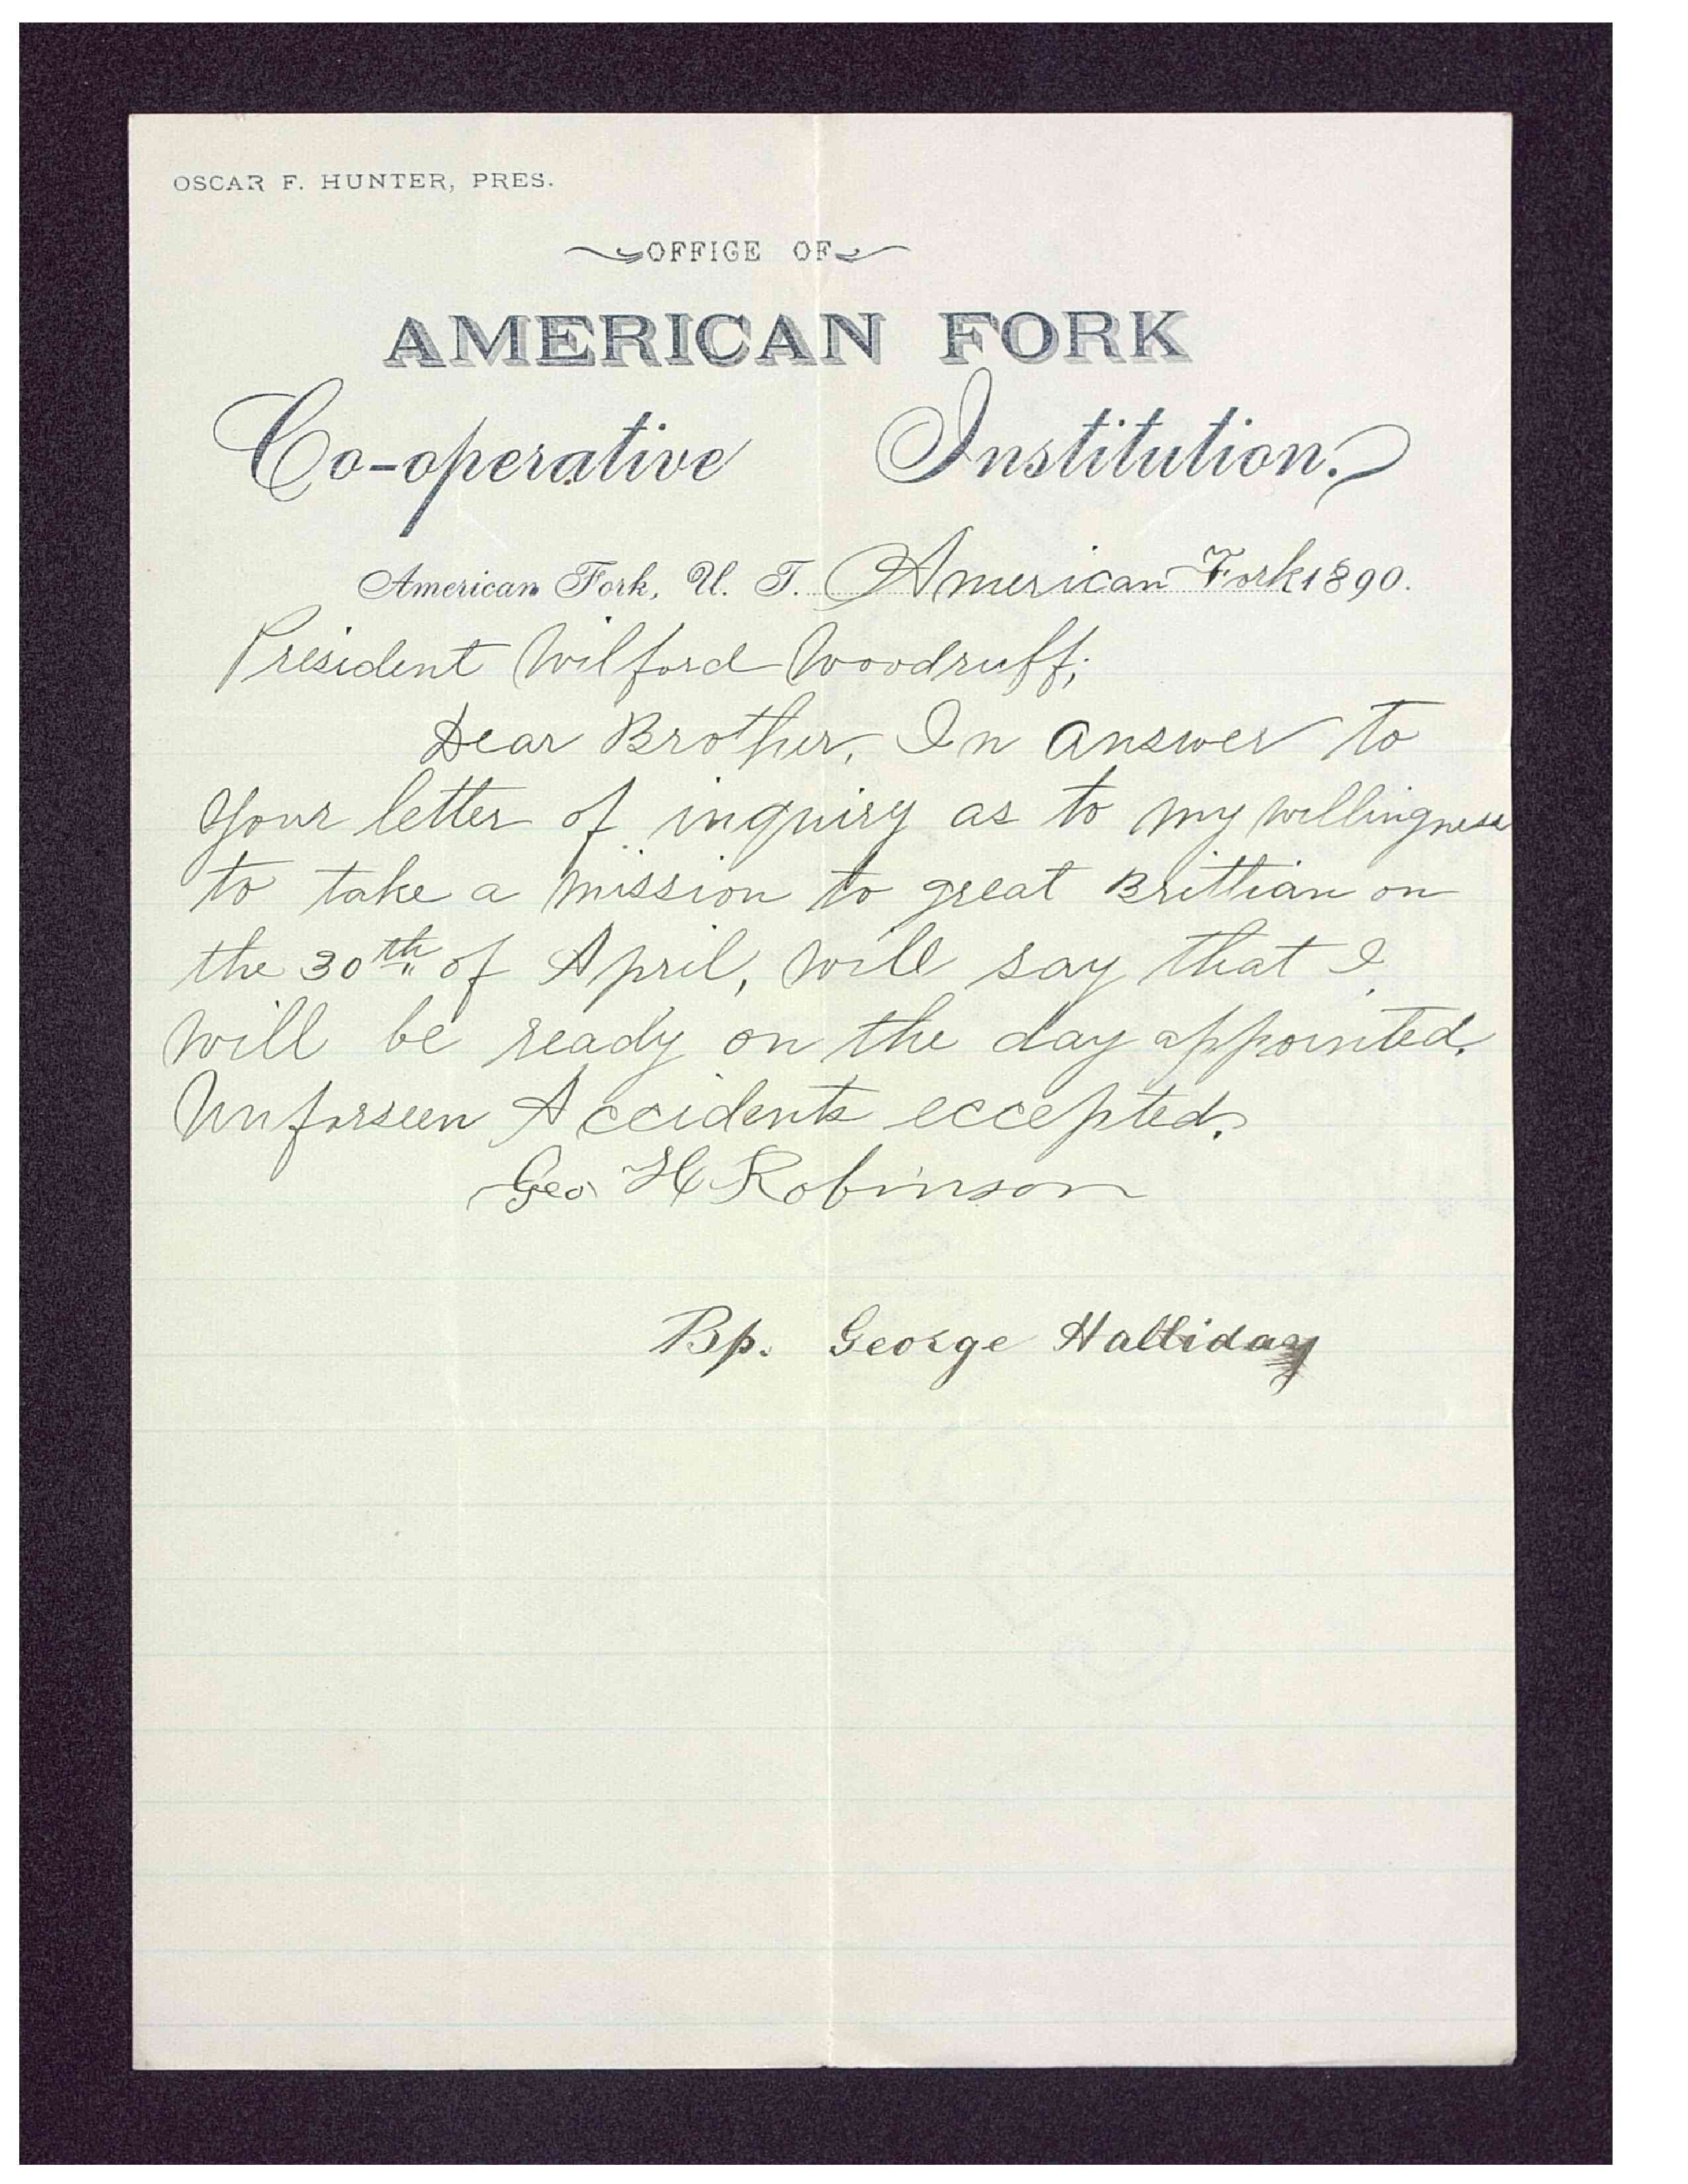 OSCAR F. HUNTER, PRES.
OFFICE OF
AMERICAN FORK
Co-operative Institution.
American Fork, U. T. American Fork 1890.
President Wilford Woodruff;
Dear Brother, In answer to
your letter of inquiry as to my willingness
to take a mission to great Brittian on
the 30th of April, will say that I
will be ready on the day appointed.
Unforseen Accidents eccepted.
Geo H Robinson
Bp. George Halliday